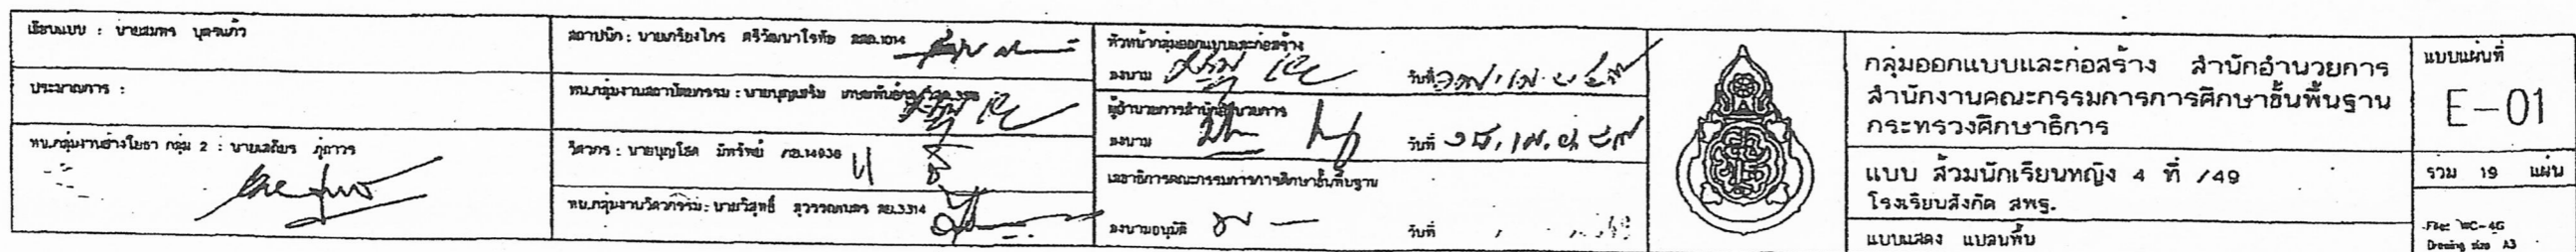 เขียนแบบ : นายสมพร บุตรแก้ว
ประมาณการ :
หน.กลุ่มงานช่างโยธา กลุ่ม 2 : นายเสถียร ภู่ถาวร
สถาปนิก : นายเกรียงไกร ศรีวัฒนาโรทัย สสถ.1014
หน.กลุ่มงานสถาปัตยกรรม : นายบุญเสริม
วิศวกร : นายบุญโชค มีทรัพย์ ภย.14936
หน.กลุ่มงานวิศวกรรม : นายวิสุทธิ์ สุวรรณเนตร สย.3314
หัวหน้ากลุ่มออกแบบและก่อสร้าง
ลงนาม วันที่
ผู้อำนวยการสำนักอำนวยการ
ลงนาม วันที่
เลขาธิการคณะกรรมการการศึกษาขั้นพื้นฐาน
ลงนามอนุมัติ วันที่
กลุ่มออกแบบและก่อสร้าง สำนักอำนวยการ
สำนักงานคณะกรรมการการศึกษาขั้นพื้นฐาน
กระทรวงศึกษาธิการ
แบบ ส้วมนักเรียนหญิง 4 ที่ /49
โรงเรียนสังกัด สพฐ.
แบบแสดง แปลนพื้น
แบบแผ่นที่
E-01
รวม 19 แผ่น
File: WC-4G
Drawing size A3